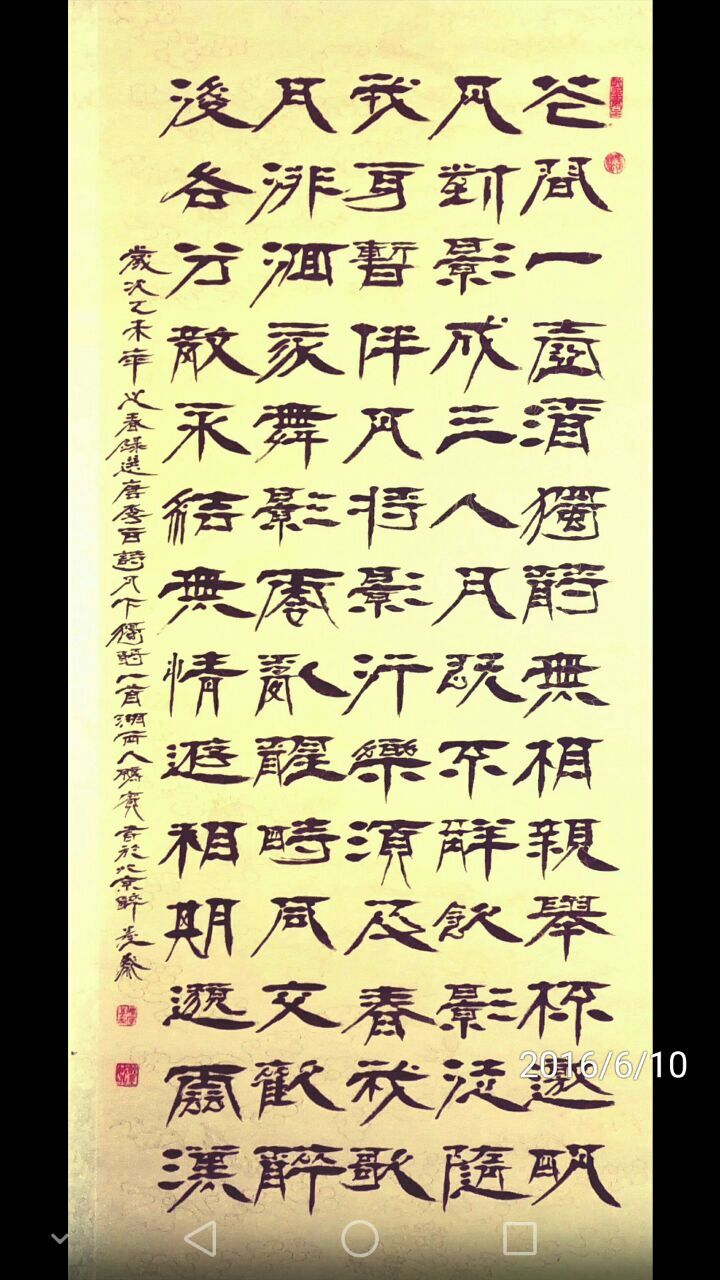 花間一壺酒獨酌無相親舉杯邀明
月對影成三人月既不解飲影徒隨
我身暫伴月將影行樂須及春我歌
月徘徊我舞影零亂醒時同交歡醉
後各分散永結無情遊相期邈雲漢
歲次乙未年之春錄選唐李白詩月下獨酌一首湖南人書於北京醉
2016/6/10